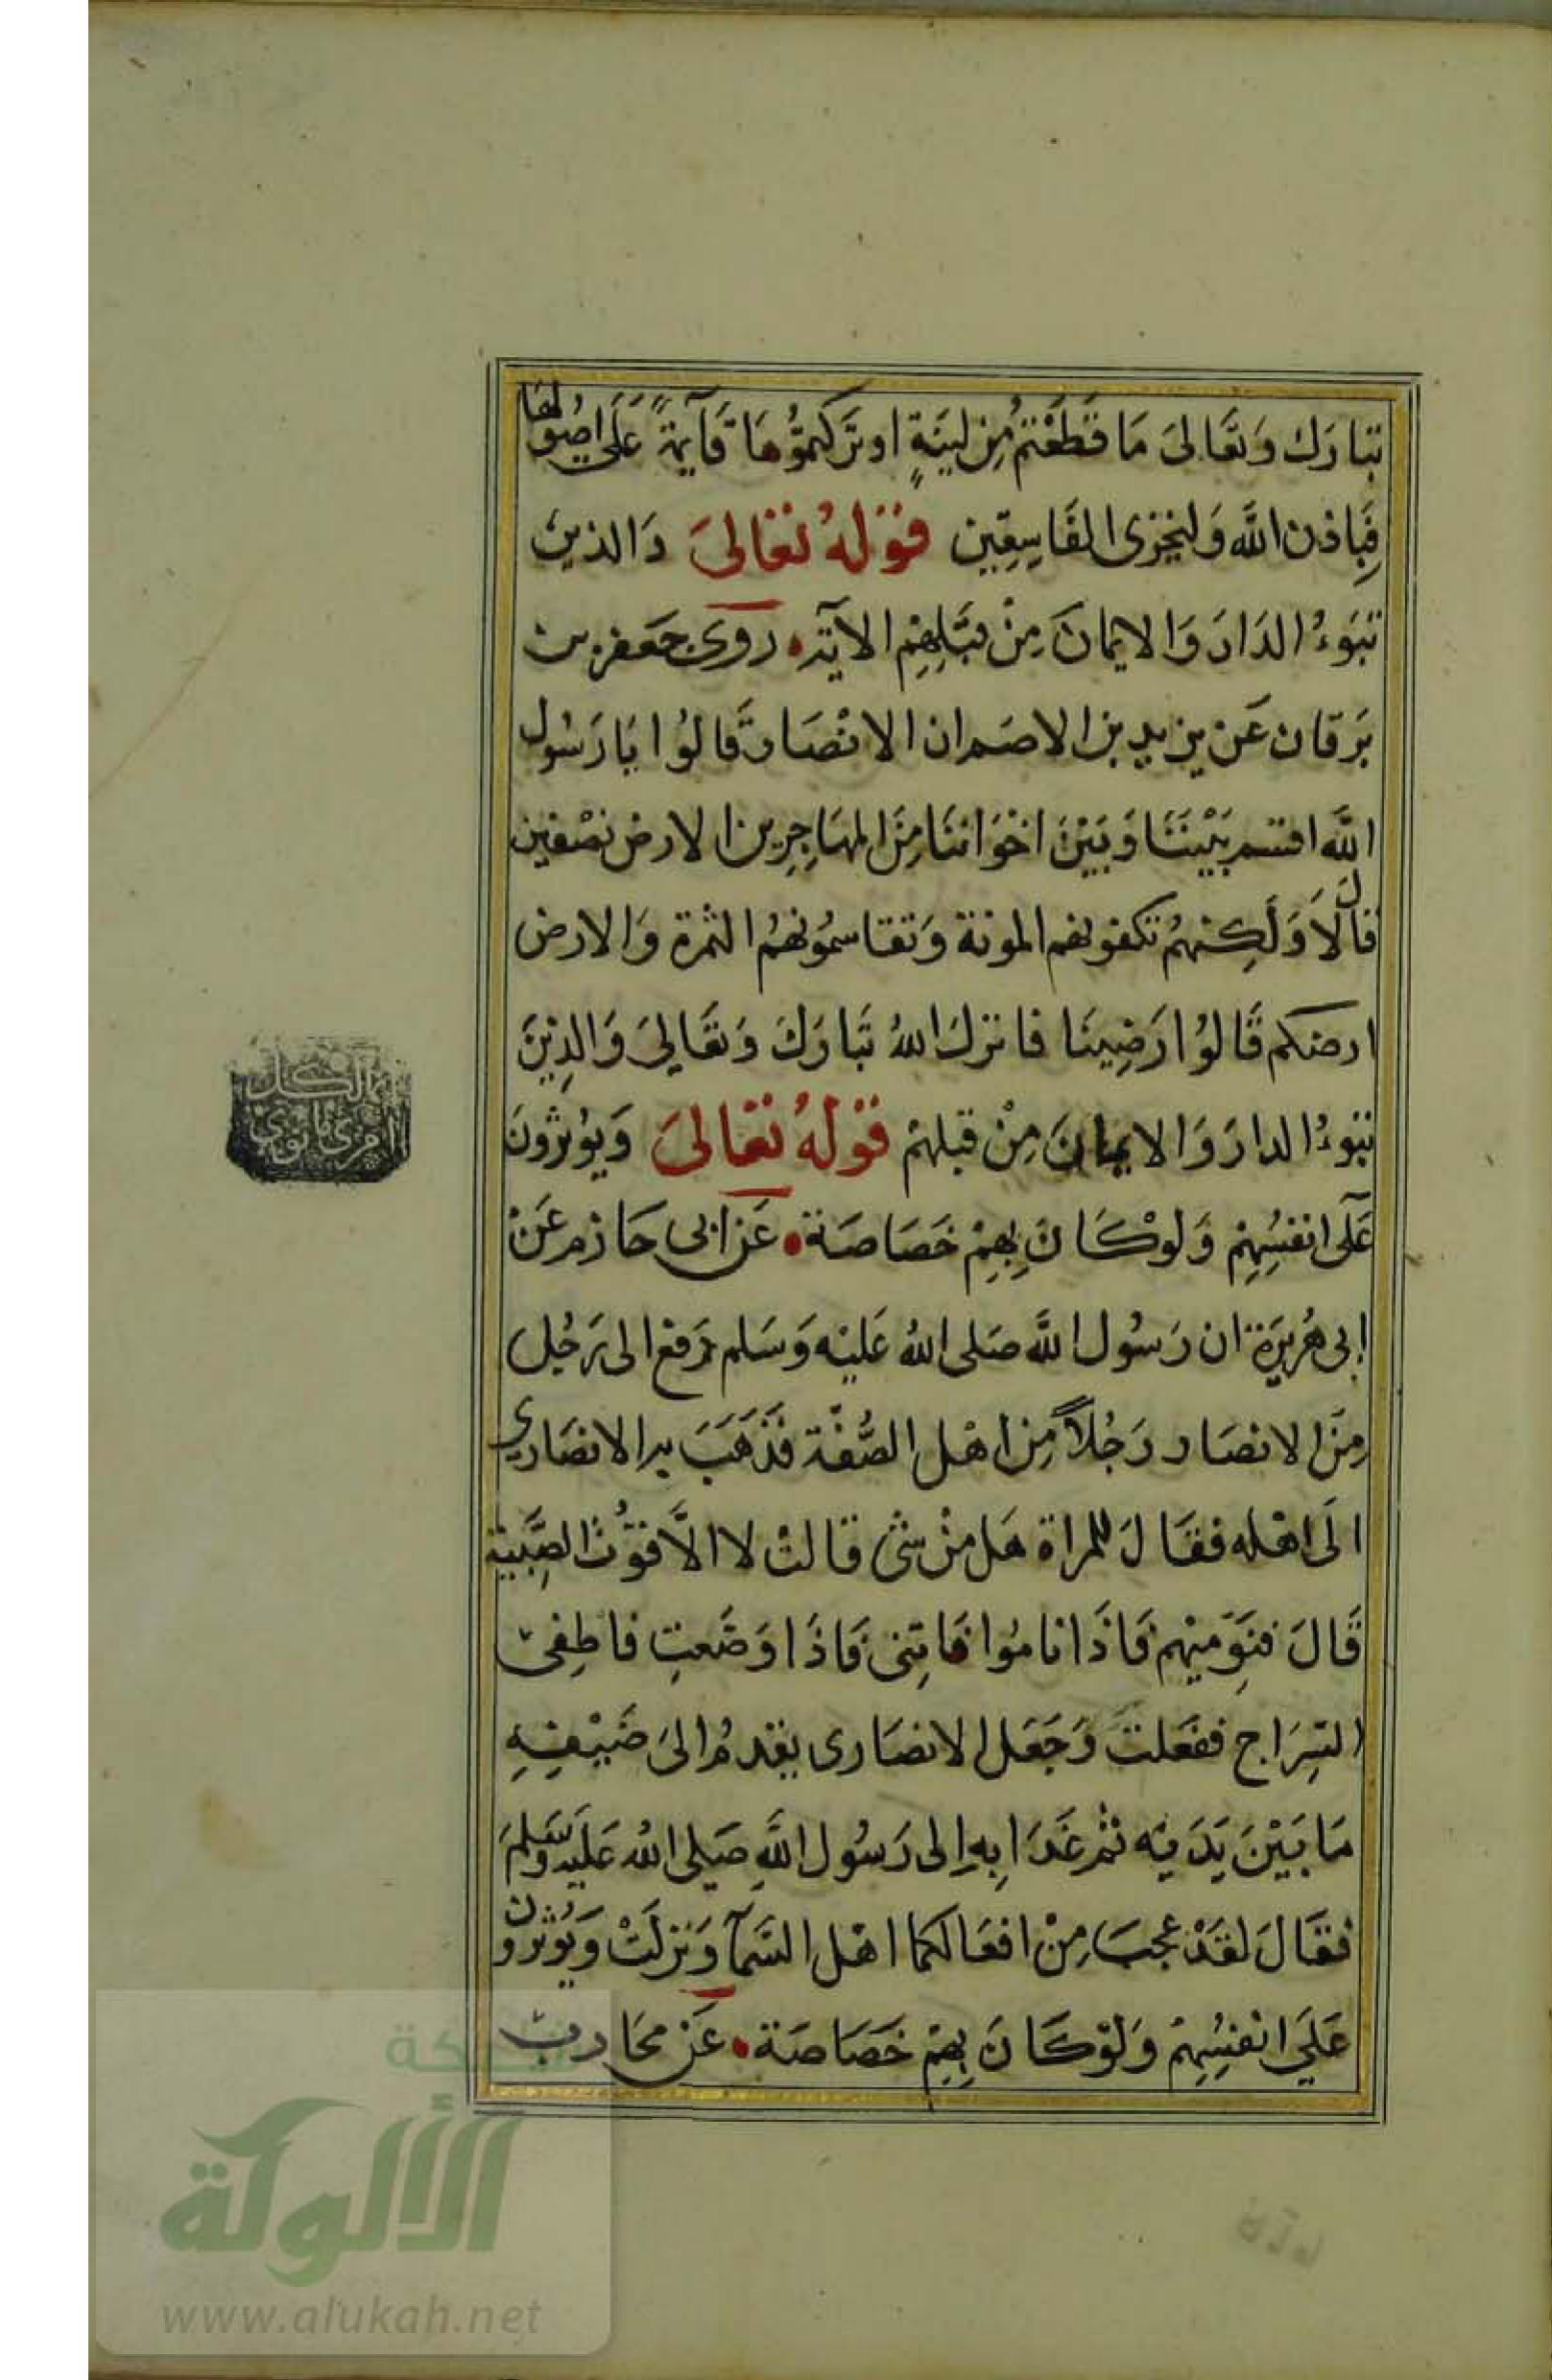 تبارَك وَتعَالىَ مَا قَطَعْتمُ مِن لينَةٍ او تَركتموُهَا قَآيمةً عَلَى اصُولهَا
فبَاذن اللَّه وَليخزى الفَاسِقِين قوْلهُ تعَالىَ وَالذين
تبوَءُ الدَارَ وَالايمانَ مِنْ قبَلِهِمِ الآية روى جَعفر بن
بَرقان عَن يزيد بن الاصَم ان الانْصَار قَالوُا يَا رَسُول
اللَّه اقتسم بَيْننَا وَبَيْنَ اخْوَاننَا مِنَ المهَاجِرِين الارض نصْفين
قالَ لاَ وَلَكِنهُم تكفونهم المونة وَتقاسموُنهمُ الثمرة وَالارض
ارضكم قَالوُا رَضِينَا فانزل اللهُ تبَارَكَ وَتعَاليَ وَالذِينَ
تبوءُ الدارَ وَالايمانَ مِنْ قبلهمْ قوْلهُ تعَالىَ وَيوُثرُونَ
عَلَى انفسُهِمْ وَلوْ كَانَ بِهِمْ خَصَاصَة عَن ابى حَازم عَنْ
ابى هُريَرَة ان رَسوُل اللَّه صَلى اللهُ عَليْه وَسَلم دَفع الى رَجُل
مِنَ الانصَار رَجُلاً مِن اهْل الصُّفّة فَذَهَبَ به الانصَارى
الَى اهْله فقَالَ للمراة هَل مِنْ شئ قالتْ لا الاَّ قوُّتُ الصِّبْيَة
قَالَ فنَوِميهم فَاذَا نامُوا فاتِنى فَاذَا وَضَعتِ فاطِفئ
السِرَاج ففعَلتْ وَجَعَل الانصَارى يقدمُ الىَ ضَيْفِهِ
مَا بَيْنَ يَدَيْه ثم غَدَا بِه اِلى رَسُول اللَّهِ صَلى اللهُ عَليْه وَسَلمَ
فقَالَ لقَدْ عجبَ مِنْ افعَالكما اهْل السَّمآ وَنزلَتْ وَيُوثرون
عَلَى انفسُهِمْ وَلوْ كَانَ بِهِمْ خَصَاصَة عَن محَارب
شبكة
الألوكة
www.alukah.net